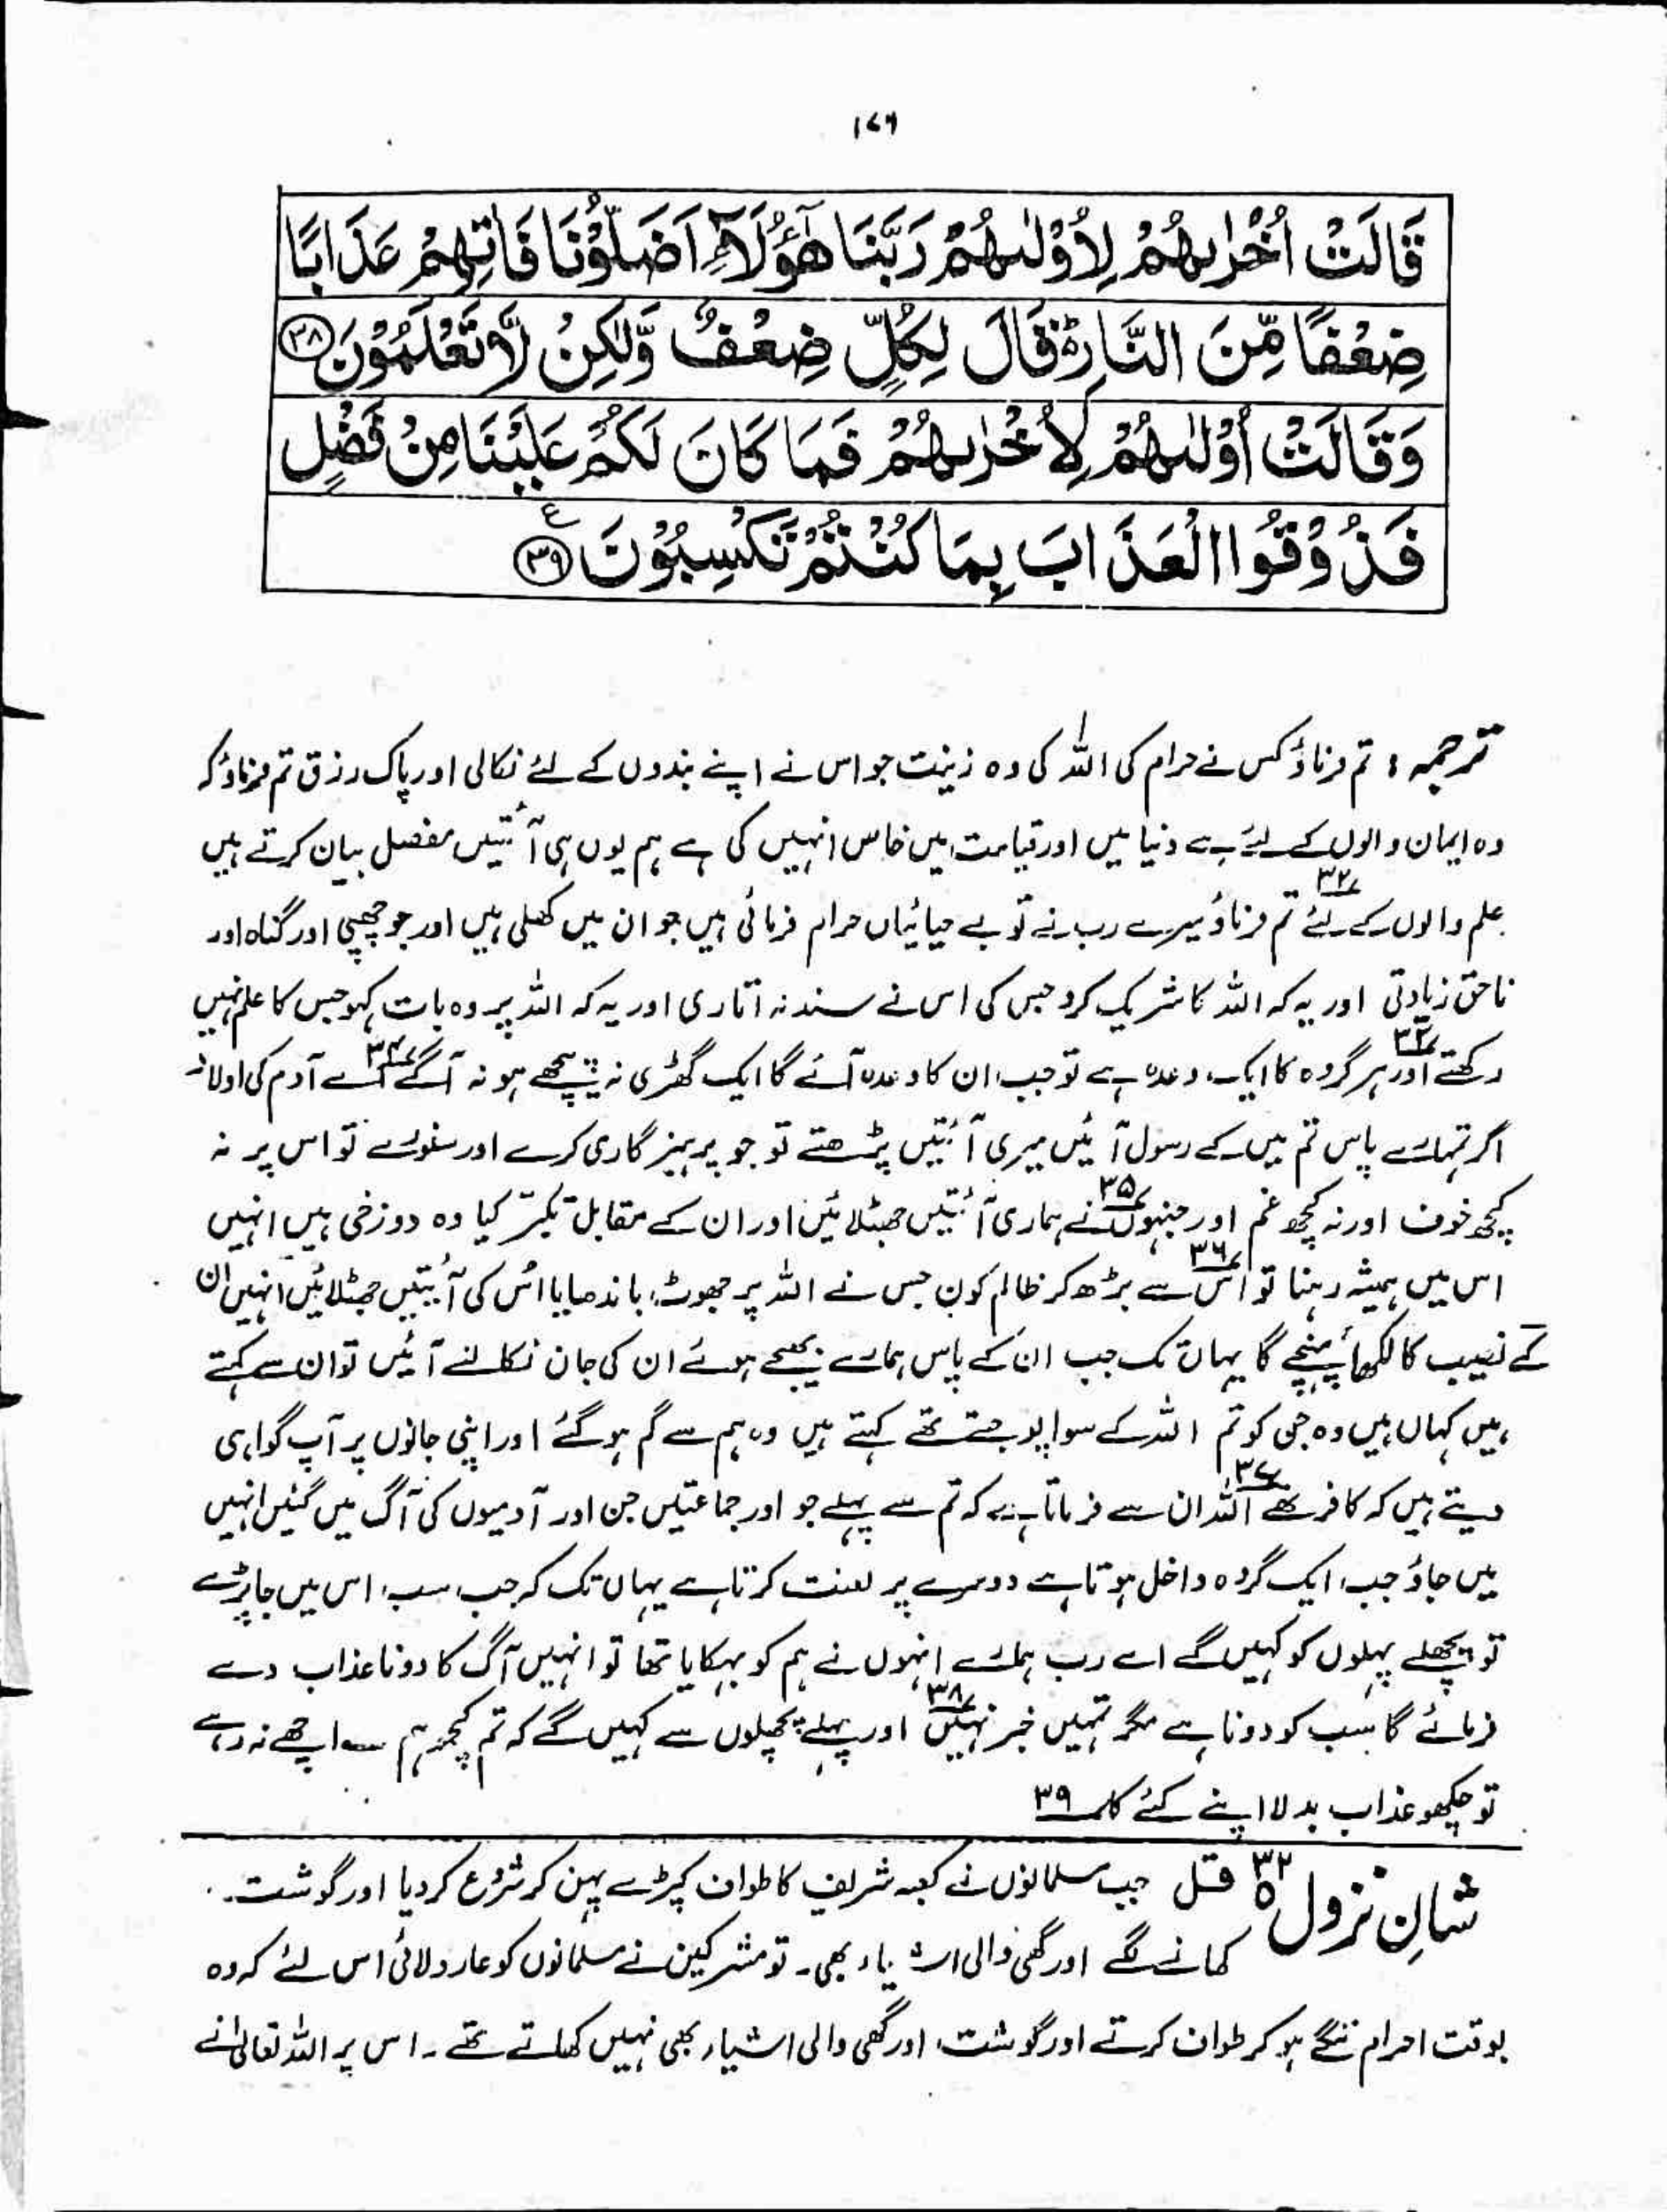 ۱۷۶
قَالَتْ اُخْرٰىهُمْ لِاُوْلٰىهُمْ رَبَّنَا هٰٓؤُلَآءِ اَضَلُّوْنَا فَاٰتِهِمْ عَذَابًا
ضِعْفًا مِّنَ النَّارِ۬ؕ قَالَ لِكُلٍّ ضِعْفٌ وَّلٰكِنْ لَّا تَعْلَمُوْنَ ۳۸
وَقَالَتْ اُوْلٰىهُمْ لِاُخْرٰىهُمْ فَمَا كَانَ لَكُمْ عَلَيْنَا مِنْ فَضْلٍ
فَذُوْقُوا الْعَذَابَ بِمَا كُنْتُمْ تَكْسِبُوْنَ ۳۹ ع
ترجمہ : تم فرماؤ کس نے حرام کی اللہ کی وہ زینت جو اس نے اپنے بندوں کے لئے نکالی اور پاک رزق تم فرماؤ کہ
وہ ایمان والوں کے لئے ہے دنیا میں اور قیامت میں خاص انہیں کی ہے ہم یوں ہی آئتیں مفصل بیان کرتے ہیں
علم والوں کے لئے ۳۲ تم فرماؤ میرے رب نے تو بے حیائیاں حرام فرمائی ہیں جو ان میں کھلی ہیں اور جو چھپی اور گناہ اور
ناحق زیادتی اور یہ کہ اللہ کا شریک کرو جس کی اس نے سند نہ اتاری اور یہ کہ اللہ پر وہ بات کہو جس کا علم نہیں
رکھتے ۳۳ اور ہر گروہ کا ایک وعدہ ہے تو جب ان کا وعدہ آئے گا ایک گھڑی نہ پیچھے ہو نہ آگے ۳۴ اے آدم کی اولاد
اگر تمہارے پاس تم میں کے رسول آئیں میری آئتیں پڑھتے تو جو پرہیزگاری کرے اور سنورے تو اس پر نہ
کچھ خوف اور نہ کچھ غم ۳۵ اور جنہوں نے ہماری آئتیں جھٹلائیں اور ان کے مقابل تکبّر کیا وہ دوزخی ہیں انہیں
اس میں ہمیشہ رہنا ۳۶ تو اس سے بڑھ کر ظالم کون جس نے اللہ پر جھوٹ باندھا یا اس کی آئتیں جھٹلائیں انہیں ان
کے نصیب کا لکھا پہنچے گا یہاں تک جب ان کے پاس ہمارے بھیجے ہوئے ان کی جان نکالنے آئیں تو ان سے کہتے
ہیں کہاں ہیں وہ جن کو تم اللہ کے سوا پوجتے تھے کہتے ہیں وہ ہم سے گم ہوگئے اور اپنی جانوں پر آپ گواہی
دیتے ہیں کہ کافر تھے ۳۷ اللہ ان سے فرماتا ہے کہ تم سے پہلے جو اور جماعتیں جن اور آدمیوں کی آگ میں گئیں انہیں
میں جاؤ جب ایک گروہ داخل ہوتا ہے دوسرے پر لعنت کرتا ہے یہاں تک کہ جب سب اس میں جا پڑے
تو پچھلے پہلوں کو کہیں گے اے رب ہمارے انہوں نے ہم کو بہکایا تھا تو انہیں آگ کا دونا عذاب دے
فرمائے گا سب کو دونا ہے مگر تمہیں خبر نہیں ۳۸ اور پہلے پچھلوں سے کہیں گے کہ تم کچھ ہم سے اچھے نہ رہے
تو چکھو عذاب بدلا اپنے کئے کا ۳۹
شانِ نزول ۳۲ قل جب مسلمانوں نے کعبہ شریف کا طواف کپڑے پہن کر شروع کر دیا اور گوشت
کھانے لگے اور گھی والی اشیاء بھی۔ تو مشرکین نے مسلمانوں کو عار دلائی اس لئے کہ وہ
بوقت احرام ننگے ہو کر طواف کرتے اور گوشت اور گھی والی اشیاء بھی نہیں کھاتے تھے۔ اس پر اللہ تعالیٰ نے